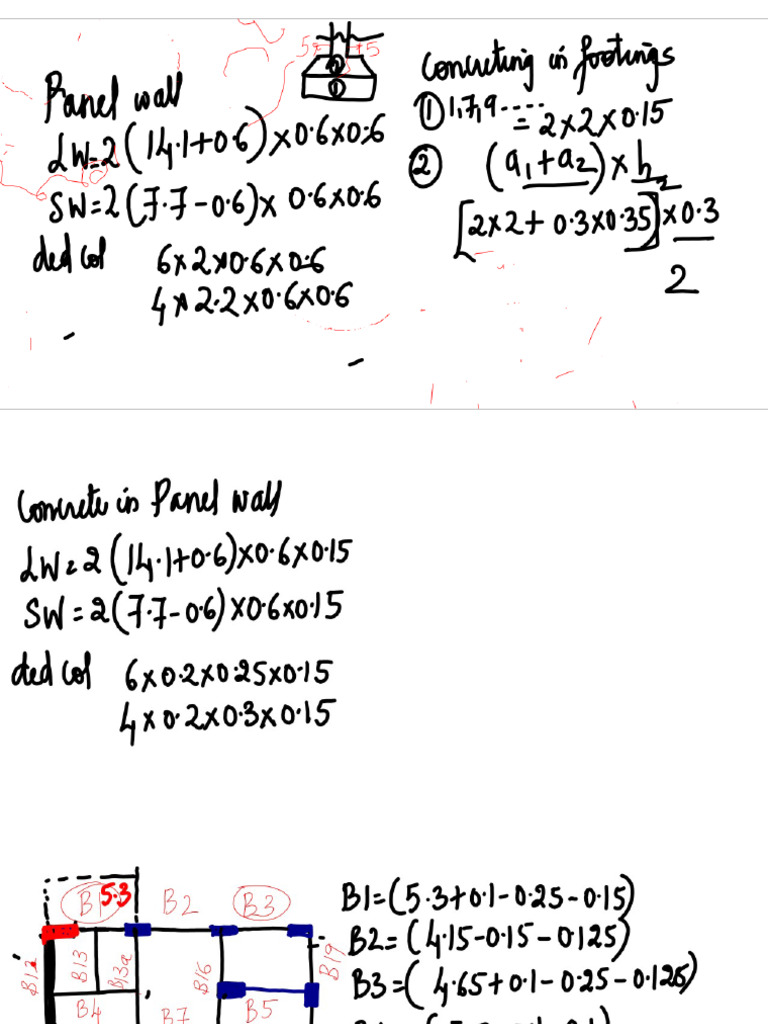 Panel wall
LW=2(14.1+0.6)×0.6×0.6
SW=2(7.7-0.6)× 0.6×0.6
ded col 6×2×0.6×0.6
4×2.2×0.6×0.6
5 5
2
1
Concreting in footings
① 1,7,9.....
= 2×2×0.15
② (a1+a2)×h
2
[2×2+0.3×0.35]×0.3
2
Concrete in Panel wall
LW=2(14.1+0.6)×0.6×0.15
SW=2(7.7-0.6)×0.6×0.15
ded col 6×0.2×0.25×0.15
4×0.2×0.3×0.15
B1 5.3 B2 B3
B12 B13 B13a B16 B19
B4 B7 B5
B1=(5.3+0.1-0.25-0.15)
B2=(4.15-0.15-0.125)
B3=(4.65+0.1-0.25-0.125)